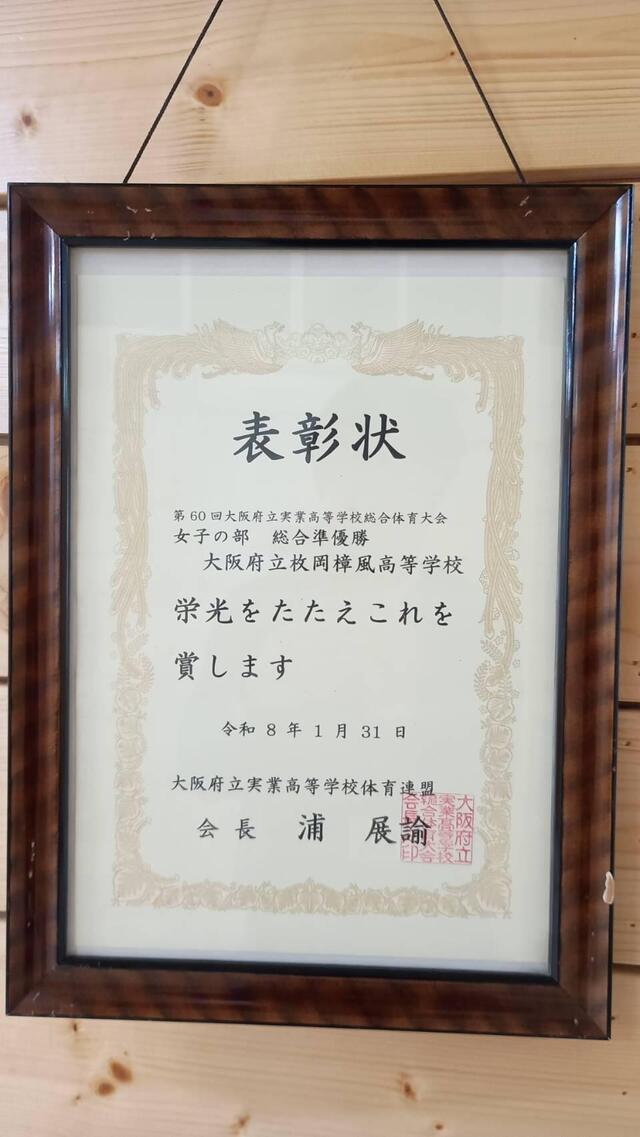 表彰状
第60回大阪府立実業高等学校総合体育大会
女子の部　総合準優勝
大阪府立枚岡樟風高等学校
栄光をたたえこれを
賞します
令和 8 年 1 月 31 日
大阪府立実業高等学校体育連盟
会長　浦　展諭
大阪府立
実業高等学校
総合体育大会
会長印